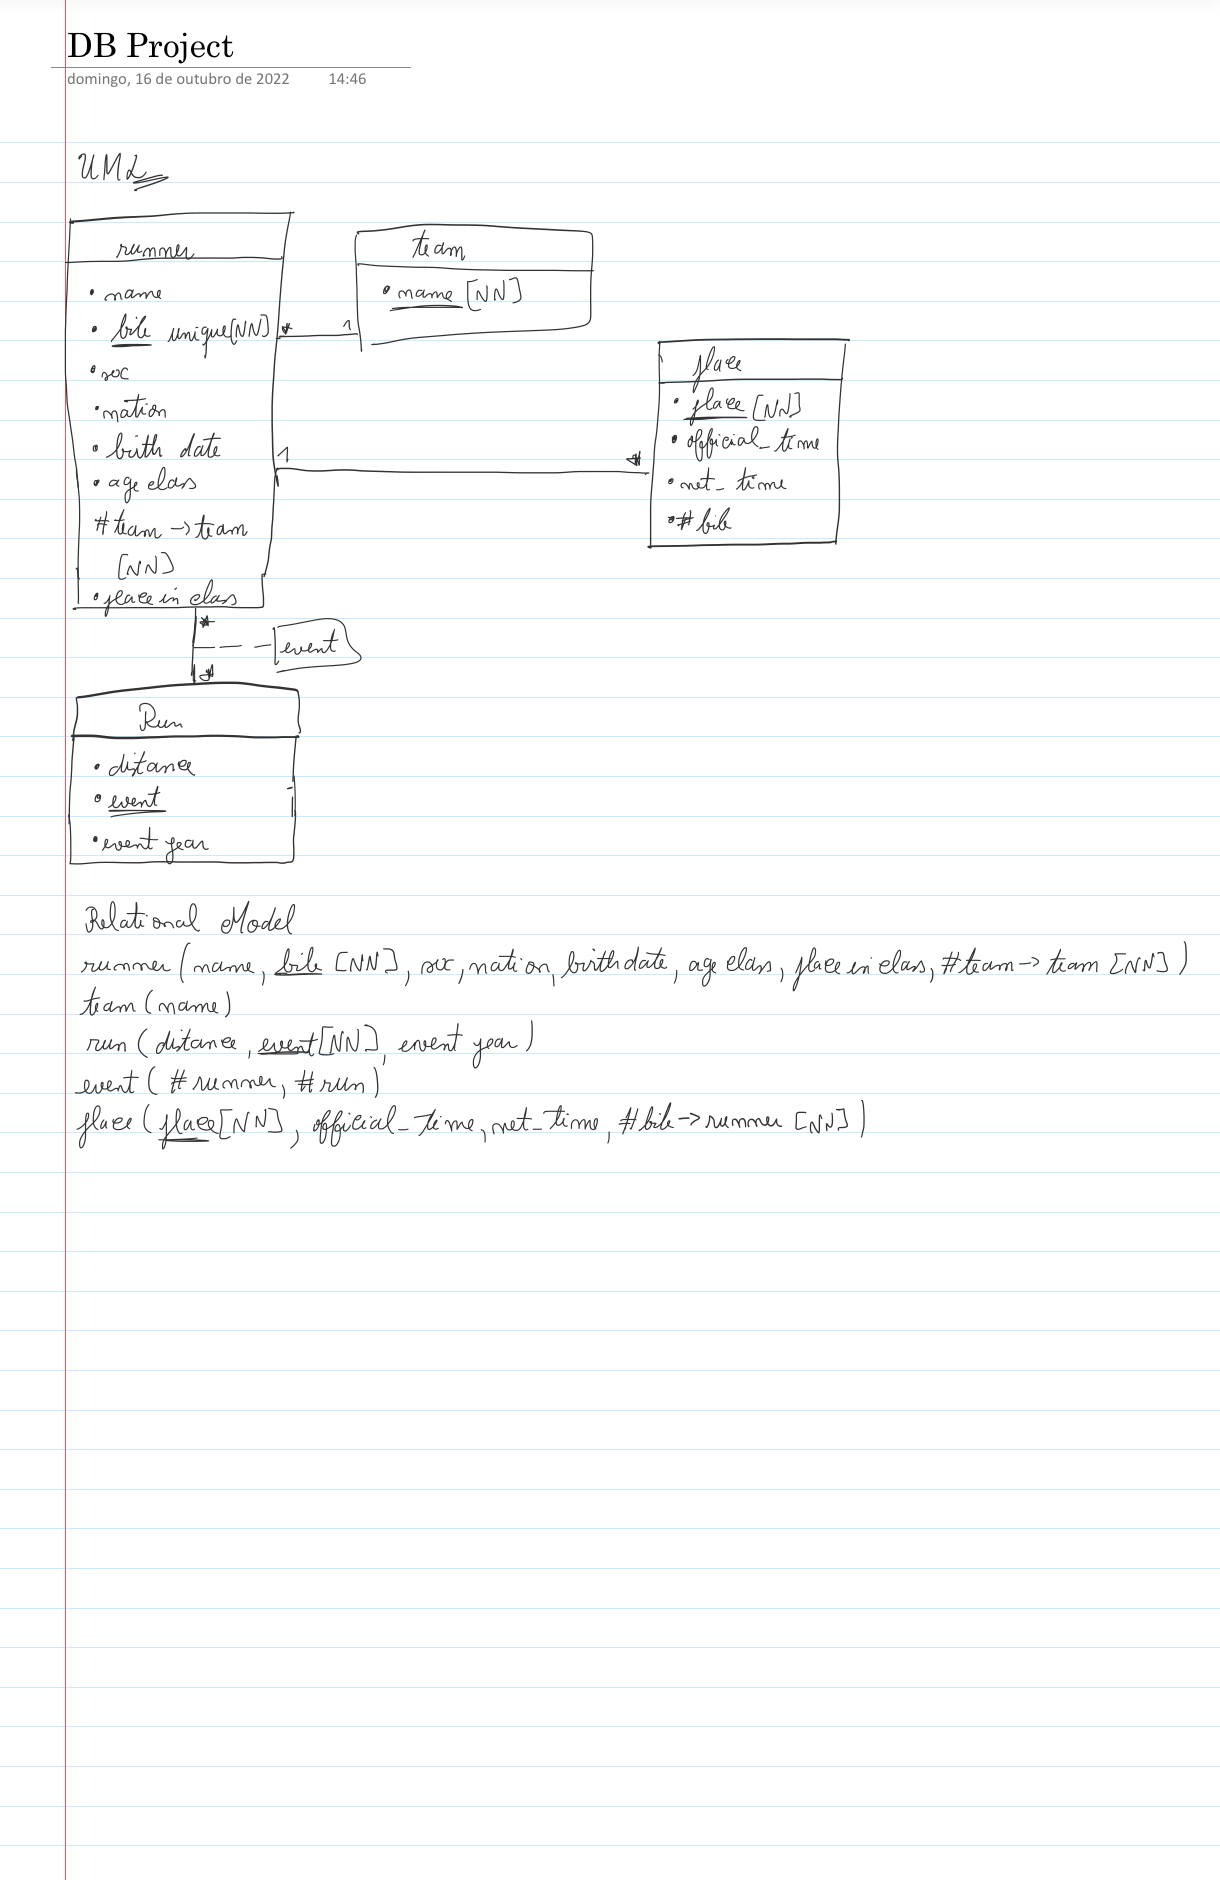 DB Project
domingo, 16 de outubro de 2022 14:46
UML
runner
• name
• bib unique[NN]
• sex
• nation
• birth date
• age class
# team -> team
[NN]
• place in class
* 1
team
• name [NN]
1 *
place
• place [NN]
• official_time
• net_time
• # bib
*
event
*
Run
• distance
• event
• event year
Relational Model
runner (name, bib [NN], sex, nation, birth date, age class, place in class, #team -> team [NN])
team (name)
run (distance, event[NN], event year)
event (#runner, #run)
place (place[NN], official_time, net_time, #bib -> runner [NN])